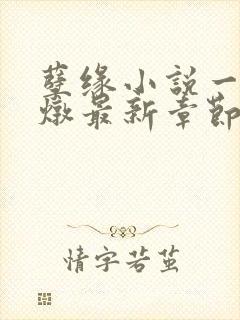 孽缘小说一
燉最新章節
情字若茧